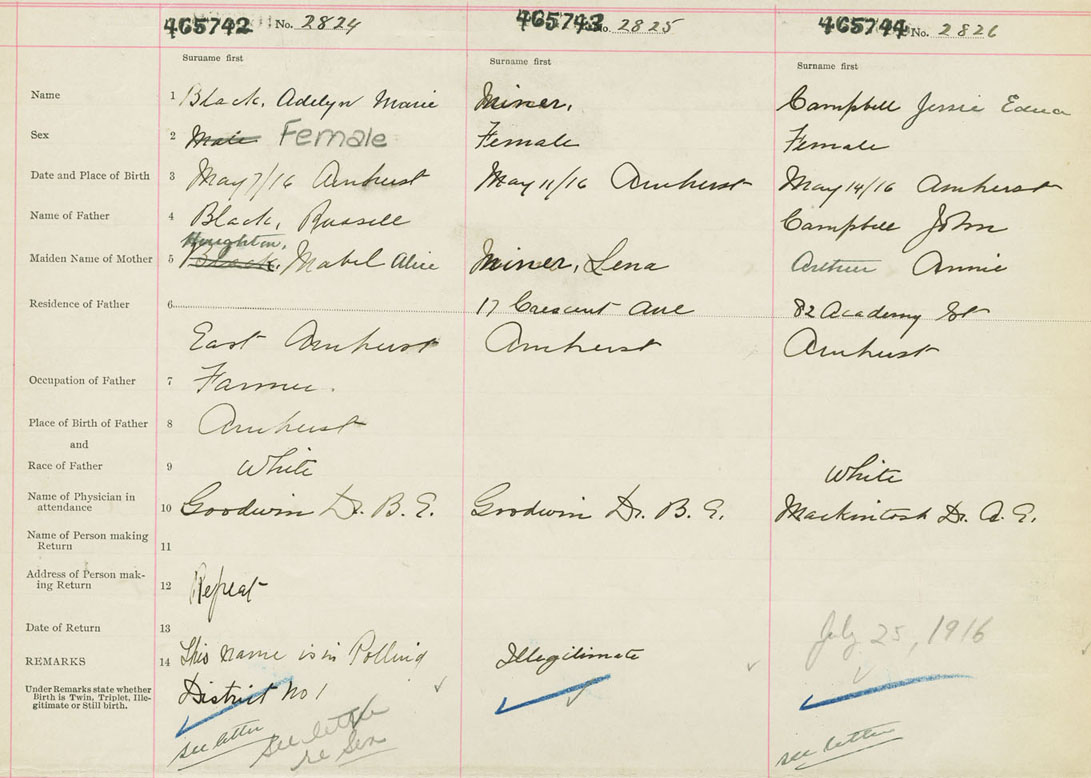 465742 No. 2824 465743 No. 2825 465744 No. 2826
Surname first Surname first Surname first
Name 1 Black, Adelyn Marie Miner, Campbell Jessie Edna
Sex 2 Male Female Female Female
Date and Place of Birth 3 May 7/16 Amherst May 11/16 Amherst May 14/16 Amherst
Name of Father 4 Black, Russell Campbell John
Houghton,
Maiden Name of Mother 5 Black, Mabel Alice Miner, Lena Annie
Residence of Father 6 17 Crescent Ave 82 Academy St
East Amherst Amherst Amherst
Occupation of Father 7 Farmer.
Place of Birth of Father 8 Amherst
and
Race of Father 9 White White
Name of Physician in
attendance 10 Goodwin Dr. B. E. Goodwin Dr. B. E. Mackintosh Dr. A. E.
Name of Person making
Return 11
Address of Person mak-
ing Return 12 Repeat
Date of Return 13 July 25, 1916
REMARKS 14 This name is in Polling Illegitimate
Under Remarks state whether
Birth is Twin, Triplet, Ille-
gitimate or Still birth.
District No 1
see letter see letter see letter
re Sex